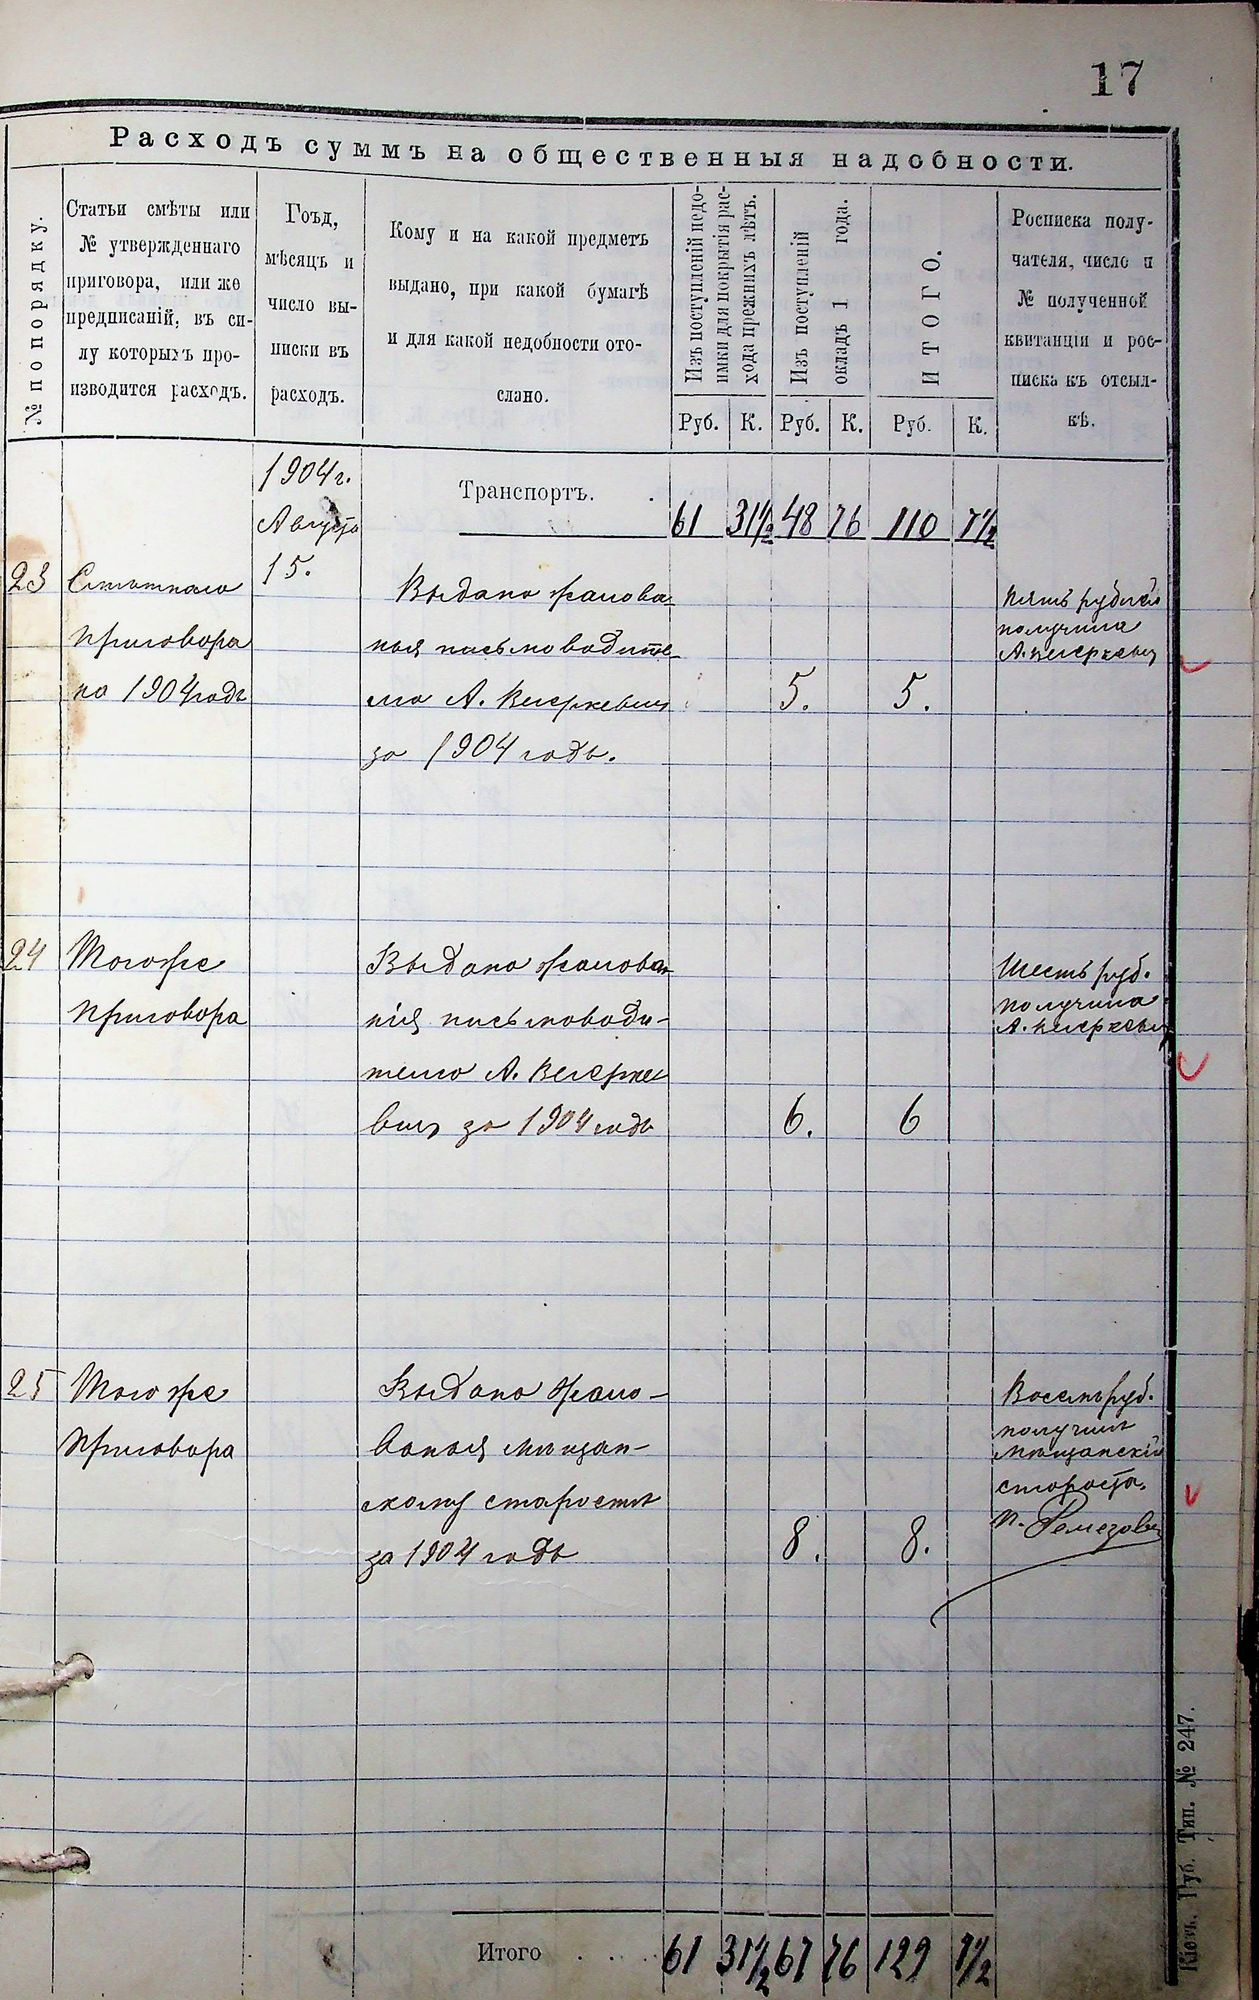 17
Расходъ суммъ на общественныя надобности.
№ по порядку.
Статьи смѣты или
№ утвержденнаго
приговора, или же
предписаній, въ си-
лу которыхъ про-
изводится расходъ.
Гоъд,
мѣсяцъ и
число вы-
писки въ
расходъ.
Кому и на какой предметъ
выдано, при какой бумагѣ
и для какой недобности ото-
слано.
Изъ поступленій недо-
имки для покрытія рас-
хода прежнихъ лѣтъ.
Изъ поступленій
окладъ 1 года.
ИТОГО.
Росписка полу-
чателя, число и
№ полученной
квитанціи и рос-
писка къ отсыл-
кѣ.
Руб. К. Руб. К. Руб. К.
1904 г.
Августа
15.
Транспортъ. . 61 31½ 48 76 110 7½
23
Смѣтнаго
приговора
на 1904 годъ
Выдано жалова-
нья письмоводите-
лю А.
за 1904 годъ.
5. 5.
Пять рублей
получилъ
А.
24
Того же
приговора
Выдано жалован-
нія письмоводи-
телю А.
за 1904 годъ
6. 6
Шесть руб.
получилъ
А.
25
Того же
приговора
Выдано жало-
ванья мѣщан-
скому старостѣ
за 1904 годъ
8. 8.
Восемь руб.
получилъ
Мѣщанскій
староста.
Итого . . . . 61 31½ 67 76 129 7½
Кіевъ. Губ. Тип. № 247.